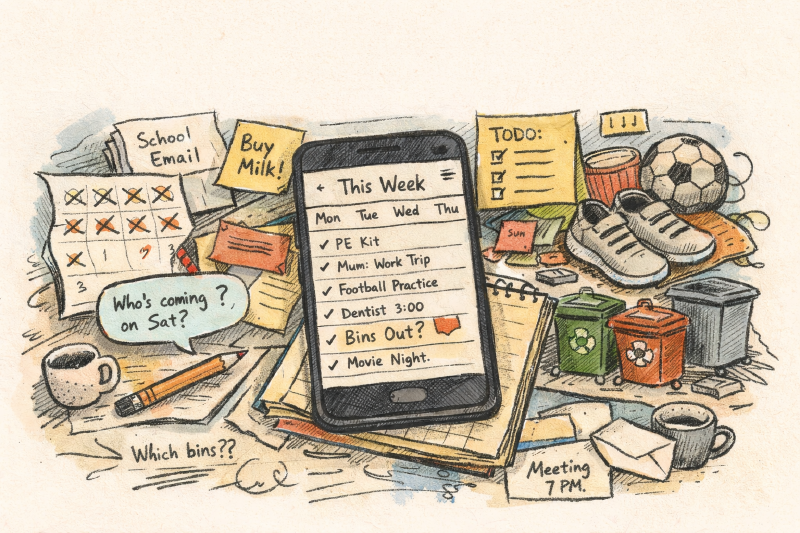 School
Email
Buy
Milk!
TODO:
This Week
Mon Tue Wed Thu
PE Kit
Mum: Work Trip
Football Practice
Dentist 3:00
Bins Out?
Movie Night.
Sun
1
3
3
Who's coming ?,
on Sat?
Which bins??
Meeting
7 PM.